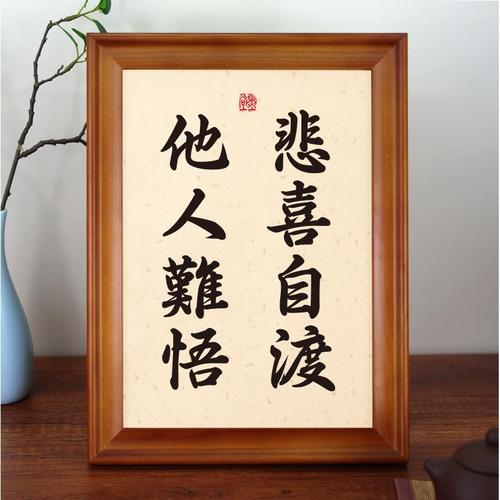 悲喜自渡
他人難悟